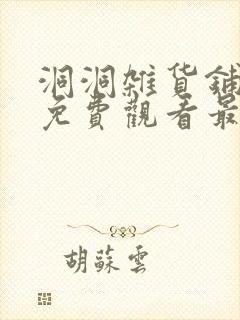 洞洞雜貨鋪
免費觀看最
胡蘇雲